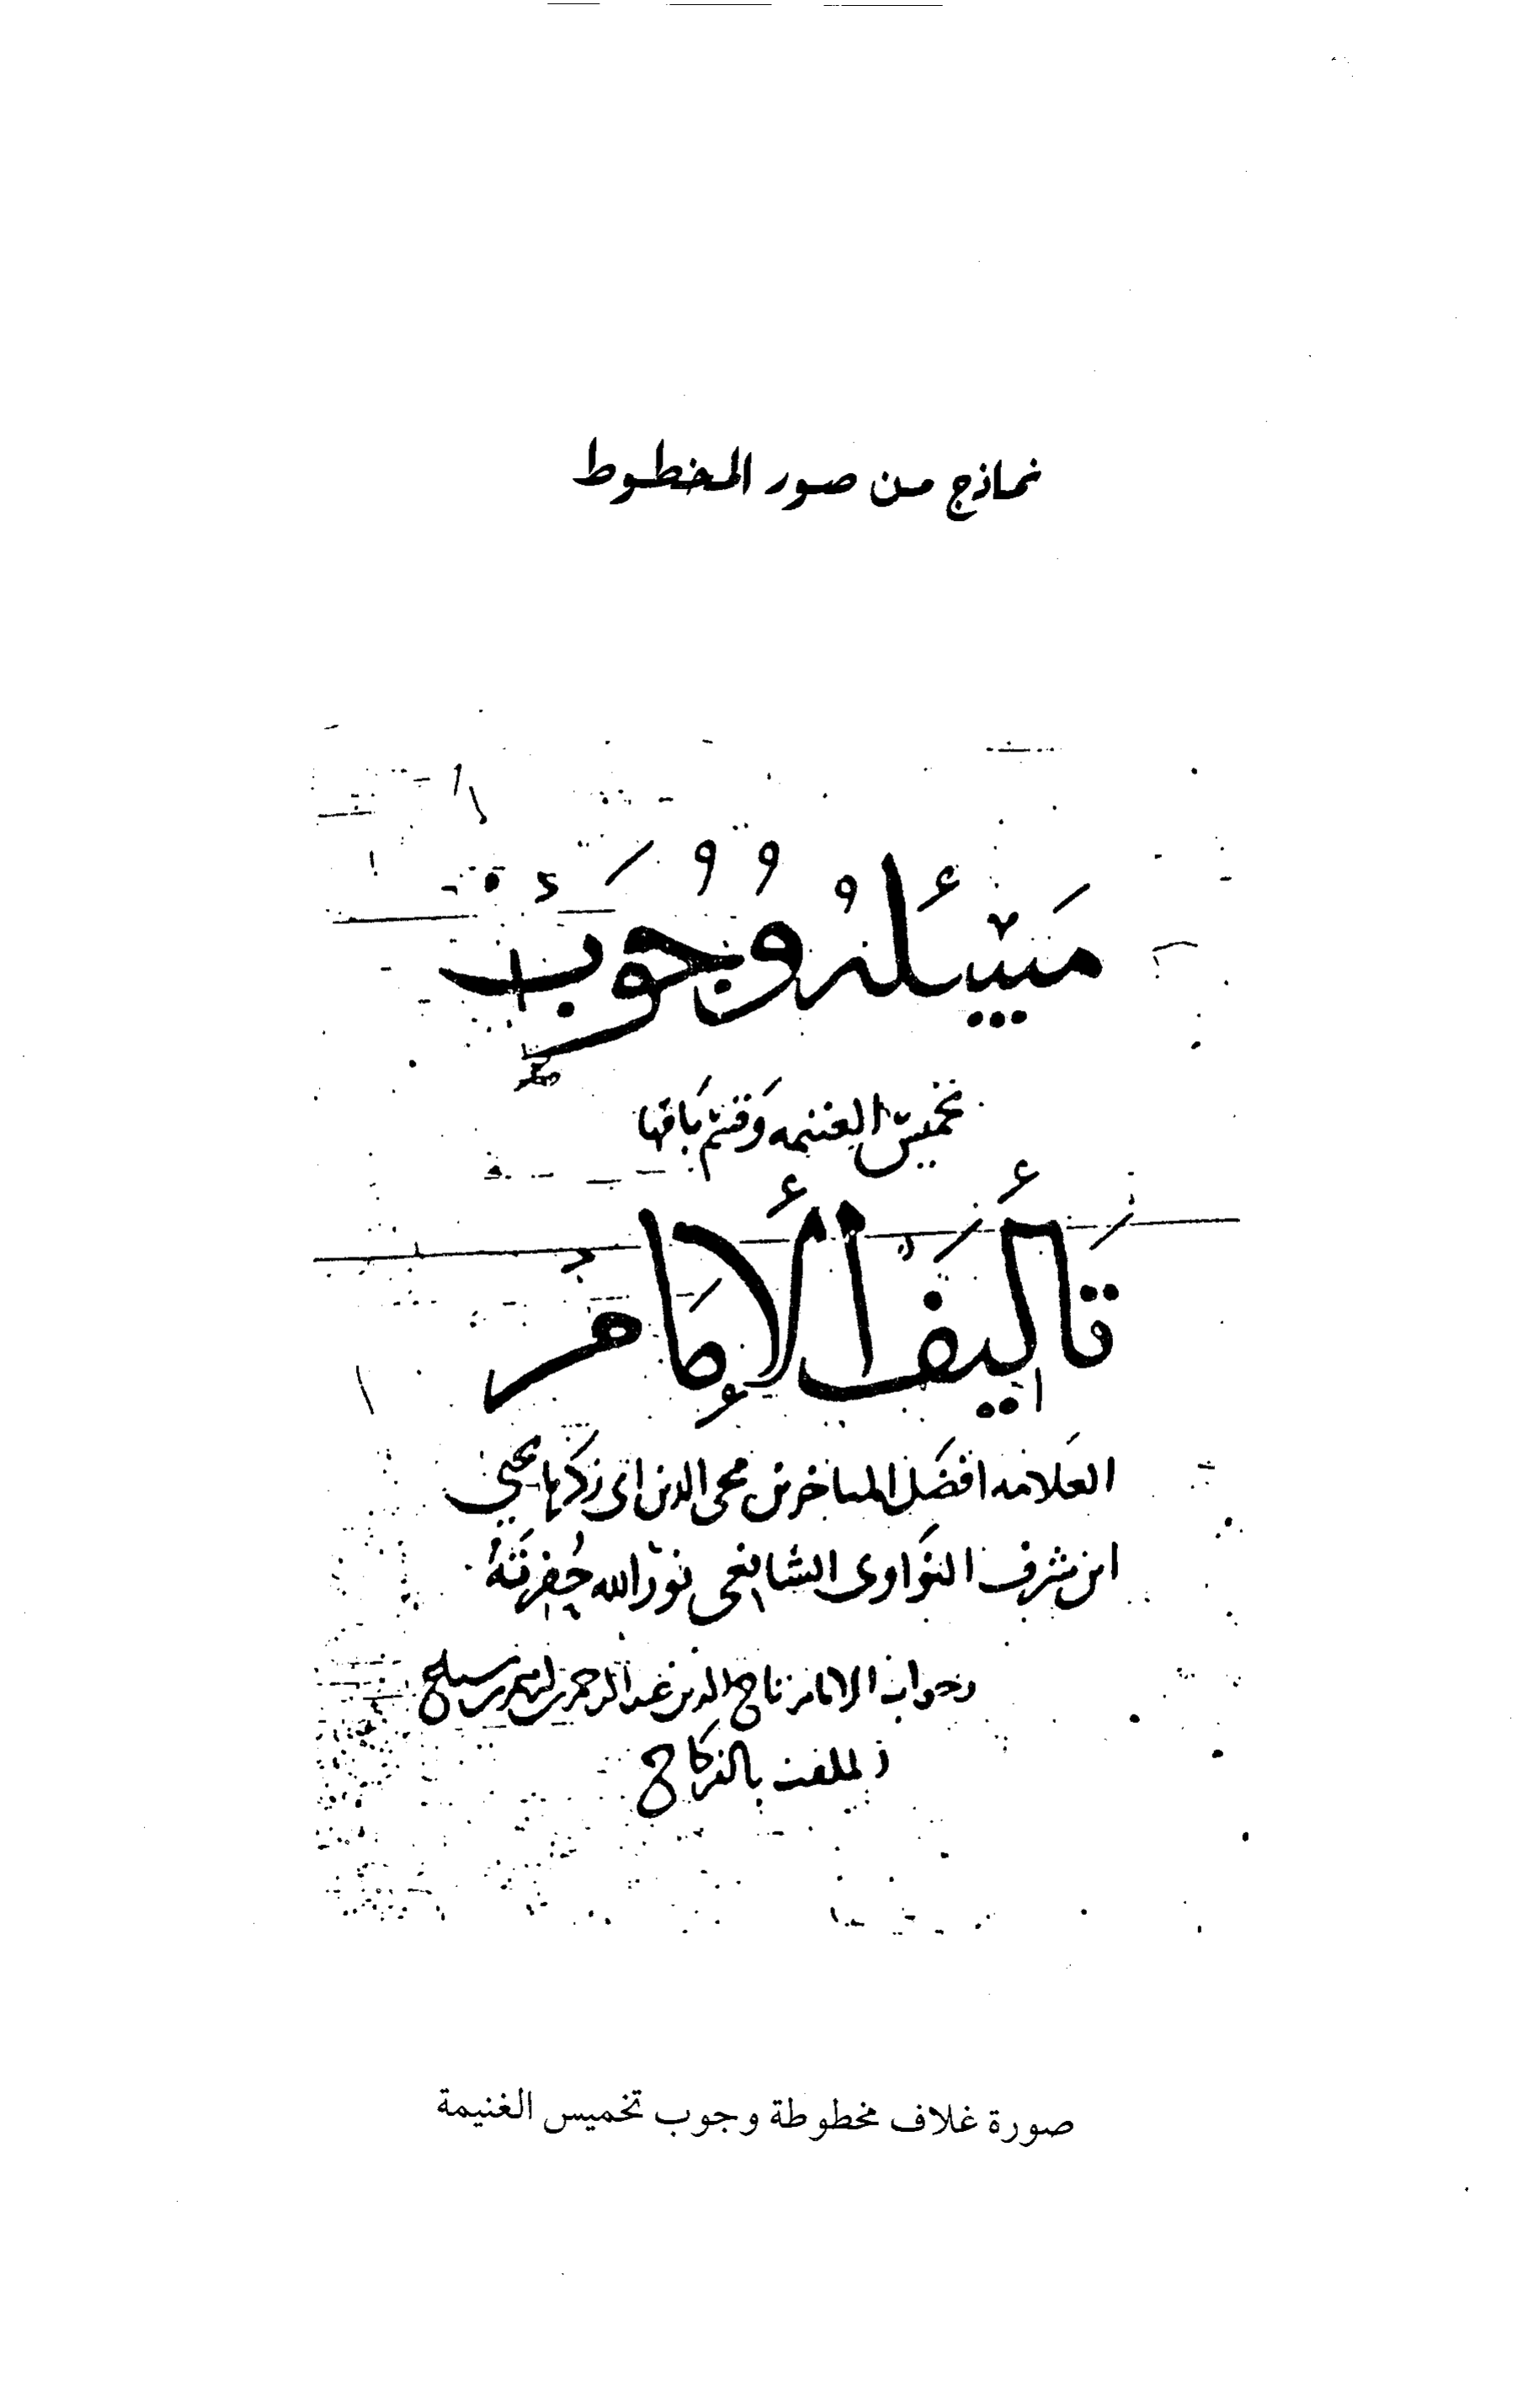 نماذج من صور المخطوط
مَسْئَلَةُ وُجُوبْ
تخميس الغنيمه وَقسْم بَاقيها
تَأليفُ الأِمَامِ
العَلامه افضَل المتاخرين محى الدين ابى زكَريا يحيى
ابن شرف النوَاوى الشافعى نوّر الله حُفرتَهُ
وجواب الامام تاج الدين عبد الرحمن بن
الملقب بالفركاح
صورة غلاف مخطوطة وجوب تخميس الغنيمة